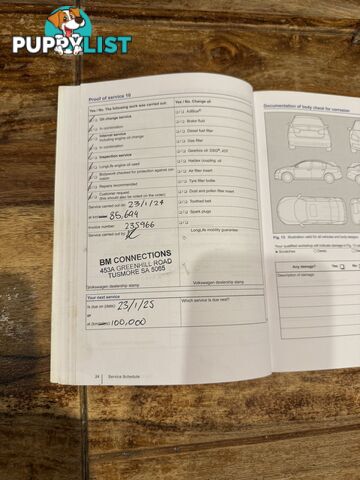 PUPPYLIST
Proof of service 10
Yes / No: The following work was carried out:
Oil change service
in combination
Interval service
including engine oil change
in combination
Inspection service
LongLife engine oil used
Bodywork checked for protection against corrosion
Repairs recommended
Customer request
(this should also be noted on the order)
Service carried out on: 23/1/24
at km 85,644
Invoice number: 235966
Service carried out by:
BM CONNECTIONS
453A GREENHILL ROAD
TUSMORE SA 5065
Volkswagen dealership stamp
Yes / No: Change oil:
AdBlue®
Brake fluid
Diesel fuel filter
Gas filter
Gearbox oil
Haldex coupling oil
Air filter insert
Tyre filler bottle
Dust and pollen filter insert
Toothed belt
Spark plugs
LongLife mobility guarantee
Volkswagen dealership stamp
Your next service
is due on (date) 23/1/25
or
at (km) 100,000
Which service is due next?
24 Service Schedule
Documentation of body check for corrosion
Any damage?
Yes
Description of damage